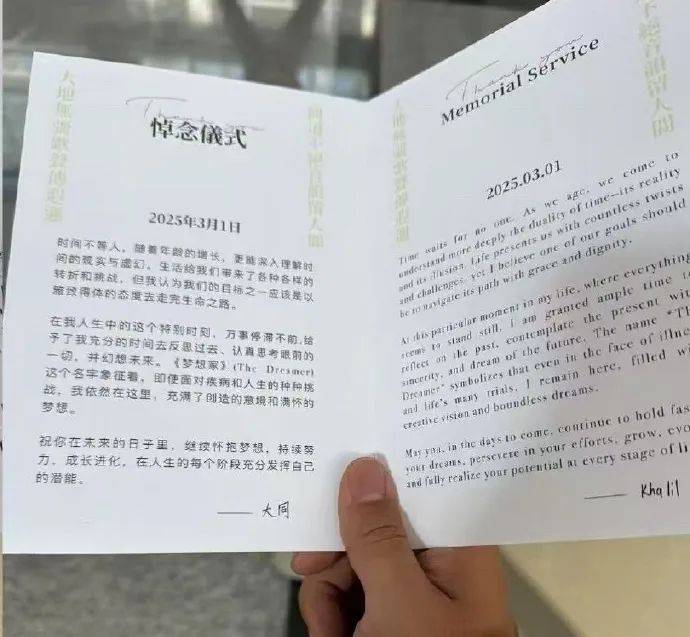 Thank you
悼念儀式
2025年3月1日
时间不等人，随着年龄的增长，更能深入理解时
间的现实与虚幻。生活给我们带来了各种各样的
转折和挑战，但我认为我们的目标之一应该是以
施得体的态度去走完生命之路。
在我人生中的这个特别时刻，万事停滞不前，给
予了我充分的时间去反思过去、认真思考眼前的
一切，并幻想未来。《梦想家》(The Dreamer)
这个名字象征着，即便面对疾病和人生的种种挑
战，我依然在这里，充满了创造的意境和满怀的
梦想。
祝你在未来的日子里，继续怀抱梦想，持续努
力，成长进化，在人生的每个阶段充分发挥自己
的潜能。
—— 大同
大地
留人間
Thank you
Memorial Service
2025.03.01
Time waits for no one. As we age, we come to
understand more deeply the duality of time—its reality
and its illusion. Life presents us with countless twists
and challenges, yet I believe one of our goals should
be to navigate its path with grace and dignity.
At this particular moment in my life, where everything
seems to stand still, I am granted ample time to
reflect on the past, contemplate the present with
sincerity, and dream of the future. The name “Th
Dreamer” symbolizes that even in the face of illne
and life's many trials, I remain here, filled wi
creative vision and boundless dreams.
May you, in the days to come, continue to hold fas
your dreams, persevere in your efforts, grow, evo
and fully realize your potential at every stage of li
—— Khalil
留人間